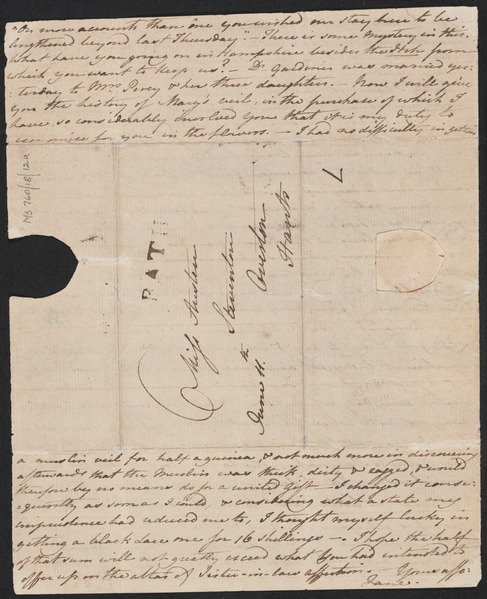 "On more accounts than one you wished our stay here to be
lengthened beyond last Thursday." - There is some Mystery in this.
What have you going on in Hampshire besides the Itch from
which you want to keep us? Dr Gardiner was married yes-
terday to Mrs Percy & her three daughters. - Now I will give
you the history of Mary's veil, in the purchase of which I
have so considerably involved you that it is my duty to
economise for you in the flowers. - I had no difficulty in getting
MS 760/18/12a
BATH
7
Miss Austen
Steventon
Overton
Hants
June 11th
a muslin veil for half a guinea, & not much more in discovering
afterwards that the Muslin was thick, dirty & ragged, & would
therefore by no means do for a united Gift. - I changed it conse-
quently as soon as I could, & considering what a state my
imprudence had reduced me to, I thought myself lucky in
getting a black Lace one for 16 shillings -. I hope the half
of that sum will not greatly exceed what You had intended to
offer up on the altar of Sister-in-law affection. - Yours affec:
Jane.